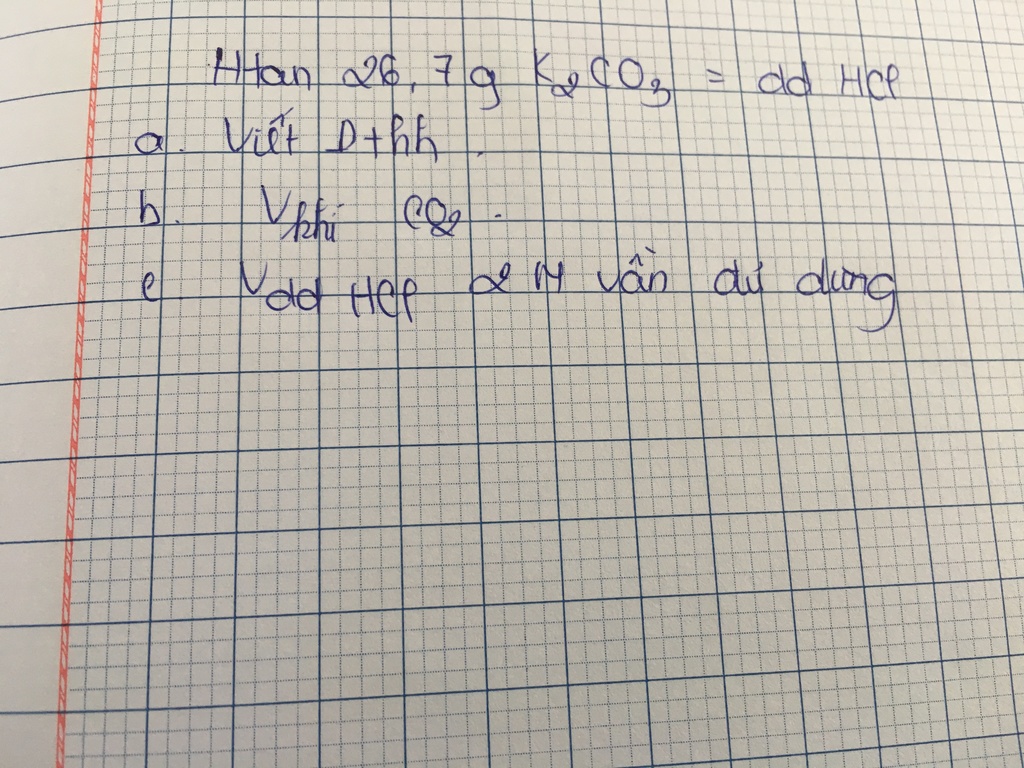 Htan 26,7 g K2CO3 = dd HCl
a. Viết Pthh.
b. Vkhí CO2.
c Vdd HCl 2M vần dủ dung